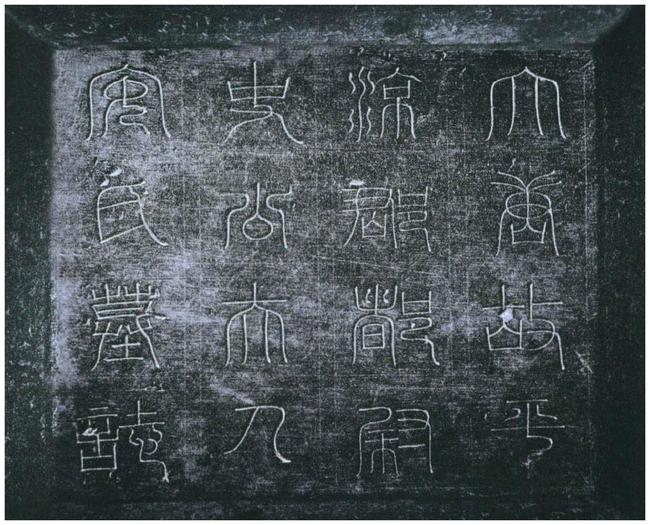 大唐故平
涼郡都尉
史公夫人
安氏墓誌